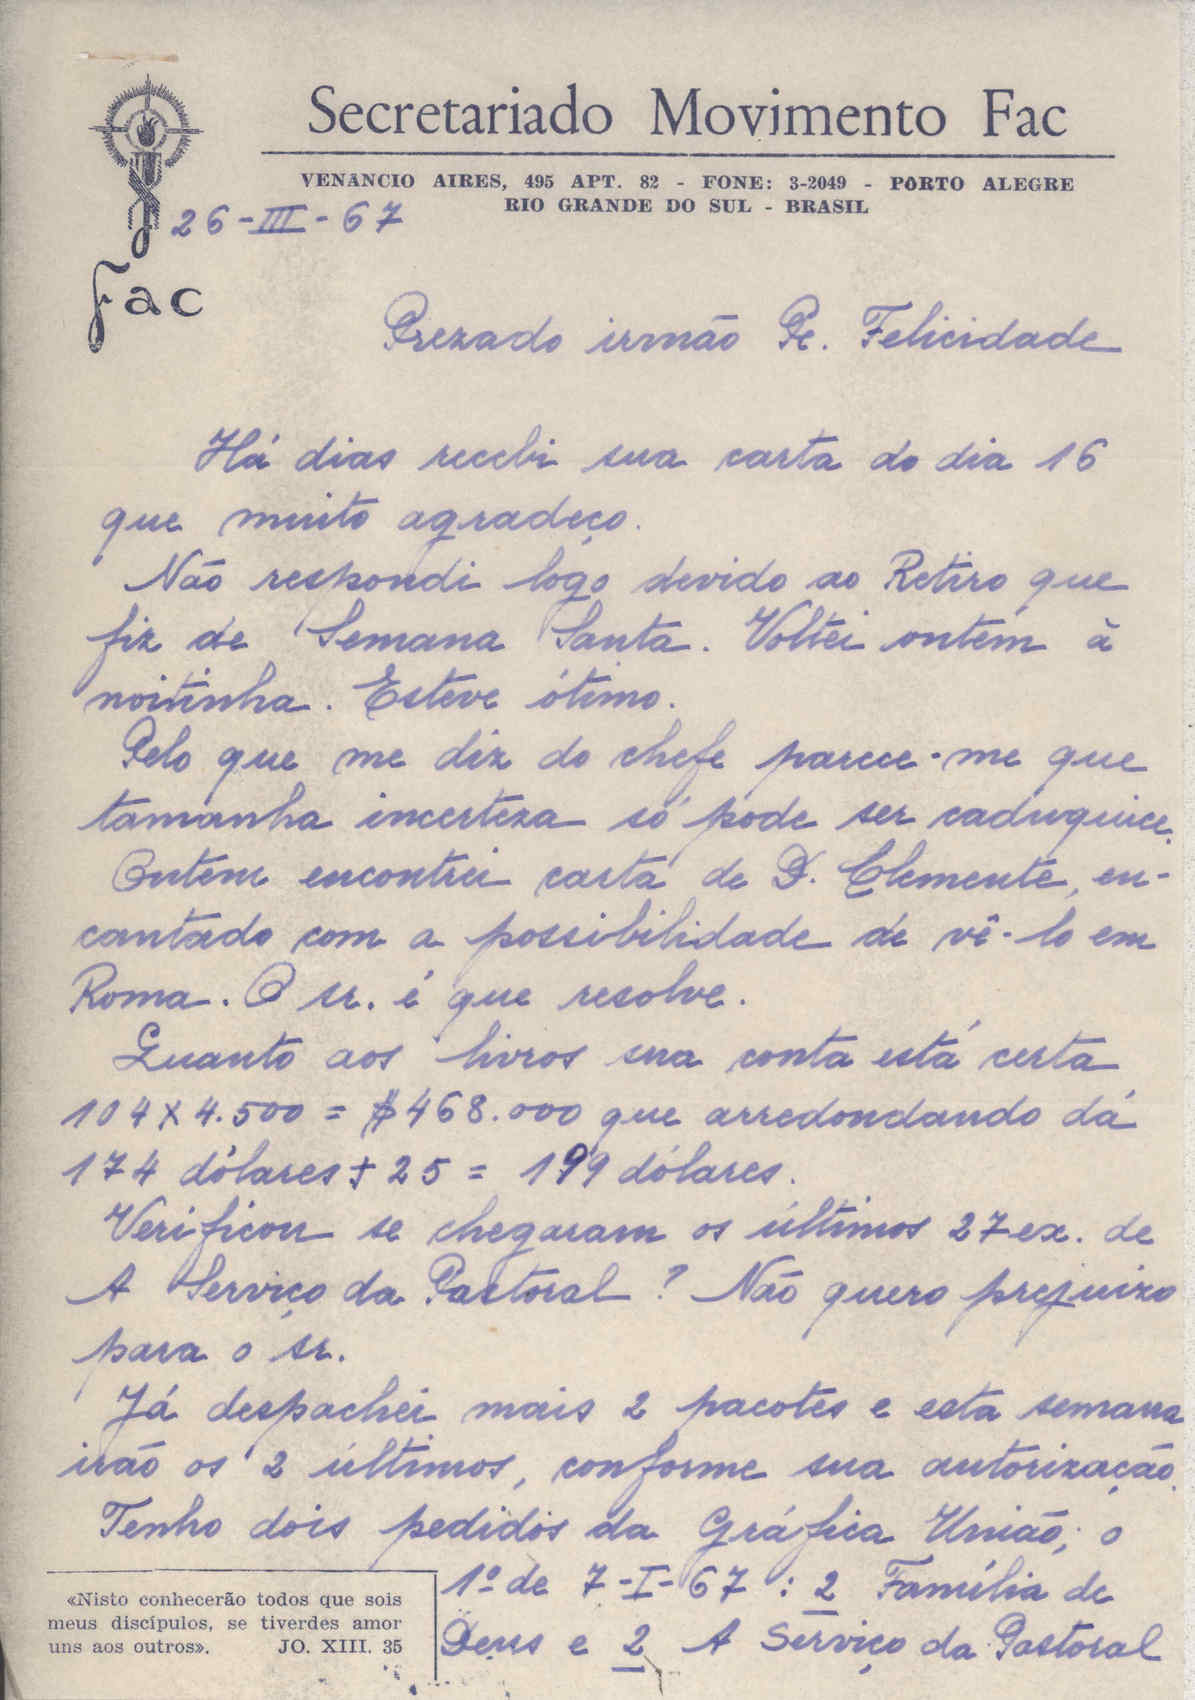 Secretariado Movimento Fac
VENANCIO AIRES, 495 APT. 82 - FONE: 3-2049 - PORTO ALEGRE
RIO GRANDE DO SUL - BRASIL
26-III-67
Fac
Prezado irmão Pe. Felicidade
Há dias recebi sua carta do dia 16
que muito agradeço.
Não respondi logo devido ao Retiro que
fiz de Semana Santa. Voltei ontem à
noitinha. Esteve ótimo.
Pelo que me diz do chefe parece-me que
tamanha incerteza só pode ser caduquice.
Ontem encontrei carta de D. Clemente, en-
cantado com a possibilidade de vê-lo em
Roma. O sr. é que resolve.
Quanto aos livros sua conta está certa
104 x 4.500 = $468.000 que arredondando dá
174 dólares + 25 = 199 dólares.
Verificou se chegaram os últimos 27 ex. de
A Serviço da Pastoral? Não quero prejuizo
para o sr.
Já despachei mais 2 pacotes e esta semana
irão os 2 últimos, conforme sua autorização.
Tenho dois pedidos da Gráfica União; o
1º de 7-I-67: 2 Família de
Deus e 2 A Serviço da Pastoral
«Nisto conhecerão todos que sois
meus discípulos, se tiverdes amor
uns aos outros». JO. XIII. 35